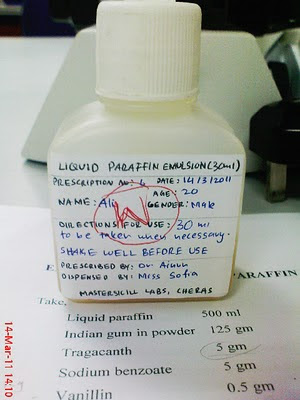 LIQUID PARAFFIN EMULSION (30ml)
PRESCRIPTION NO: 4 DATE: 14/3/2011
AGE: 20
NAME: Ali GENDER: Male
DIRECTIONS FOR USE: 30 ml
to be taken when necessary.
SHAKE WELL BEFORE USE
PRESCRIBED BY: Dr.
DISPENSED BY: Miss Sofia
MASTERSKILL LABS, CHERAS
PARAFFIN
Take,
Liquid paraffin 500 ml
Indian gum in powder 125 gm
Tragacanth 5 gm
Sodium benzoate 5 gm
Vanillin 0.5 gm
14-Mar-11 14:10